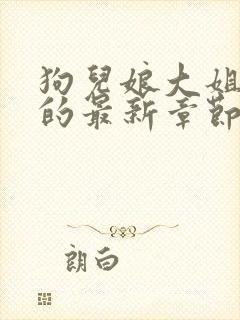 狗兒娘大姐
的最新章節
朗白